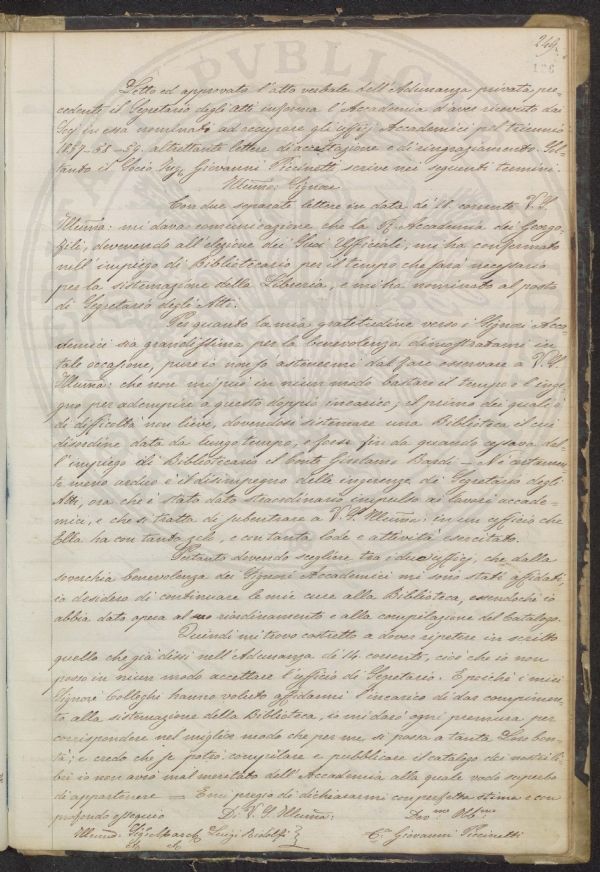 249.
186
Letto ed approvato l'atto verbale dell'Adunanza privata pre-
cedente il Segretario degli Atti informa l'Accademia d'aver ricevuto dai
Socj in essa nominati ad occupare gli ufficj Accademici pel triennio
58 - 59 altrettante lettere di accettazione e di ringraziamento.
tanto il Socio Giovanni Piccinetti scrive nei seguenti termini.
Illumo: Signore
Con due separate lettere in data de' 11 corrente V. S.
Illuma: mi dava comunicazione che la R. Accademia dei Georgo-
fili, devenendo all'elezione dei Suoi Ufficiali, mi ha confermato
nell'impiego di Bibliotecario per il tempo che sarà necessario
per la sistemazione della Libreria, e mi ha nominato al posto
di Segretario degli Atti.
Per quanto la mia gratitudine verso i Signori Acca-
demici sia grandissima per la benevolenza dimostratami in
tale occasione, pure io non so astenermi dal fare osservare a V. S.
Illuma: che non mi può in niun modo bastare il tempo e l'inge-
gno per adempire a questo doppio incarico, il primo dei quali è
di difficoltà non lieve, dovendosi sistemare una Biblioteca il cui
disordine data da lungo tempo, e forse fin da quando cessava dal-
l'impiego di Bibliotecario il Conte Girolamo Bardi - Nè certamen-
te meno arduo è il disimpegno delle ingerenze di Segretario degli
Atti, ora che è stato dato straordinario impulso ai lavori accade-
mici, e che si tratta di subentrare a V. S. Illuma: in un ufficio che
Ella ha con tanto zelo, e con tanta lode e attività esercitato.
Pertanto dovendo scegliere tra i due ufficj, che dalla
soverchia benevolenza dei Signori Accademici mi sono stati affidati,
io desidero di continuare le mie cure alla Biblioteca, essendochè io
abbia dato opera al suo riordinamento e alla compilazione del Catalogo.
Quindi mi trovo costretto a dover ripetere in scritto
quello che già dissi nell'Adunanza di 14 corrente, cioè che io non
posso in niun modo accettare l'ufficio di Segretario. E poichè i miei
Signori Colleghi hanno voluto affidarmi l'incarico di dar compimen-
to alla sistemazione della Biblioteca, io mi darò ogni premura per
corrispondere nel miglior modo che per me si possa a tanta Loro bon-
tà; e credo che se potrò compilare e pubblicare il catalogo dei nostri li-
bri io non avrò mal meritato dell'Accademia alla quale vado superbo
di appartenere = E mi pregio di dichiararmi con perfetta stima e con
profondo ossequio Di V. S. Illuma: Devmo Obbmo
Illumo: Sigr. March. Luigi Ridolfi C. Giovanni Piccinetti